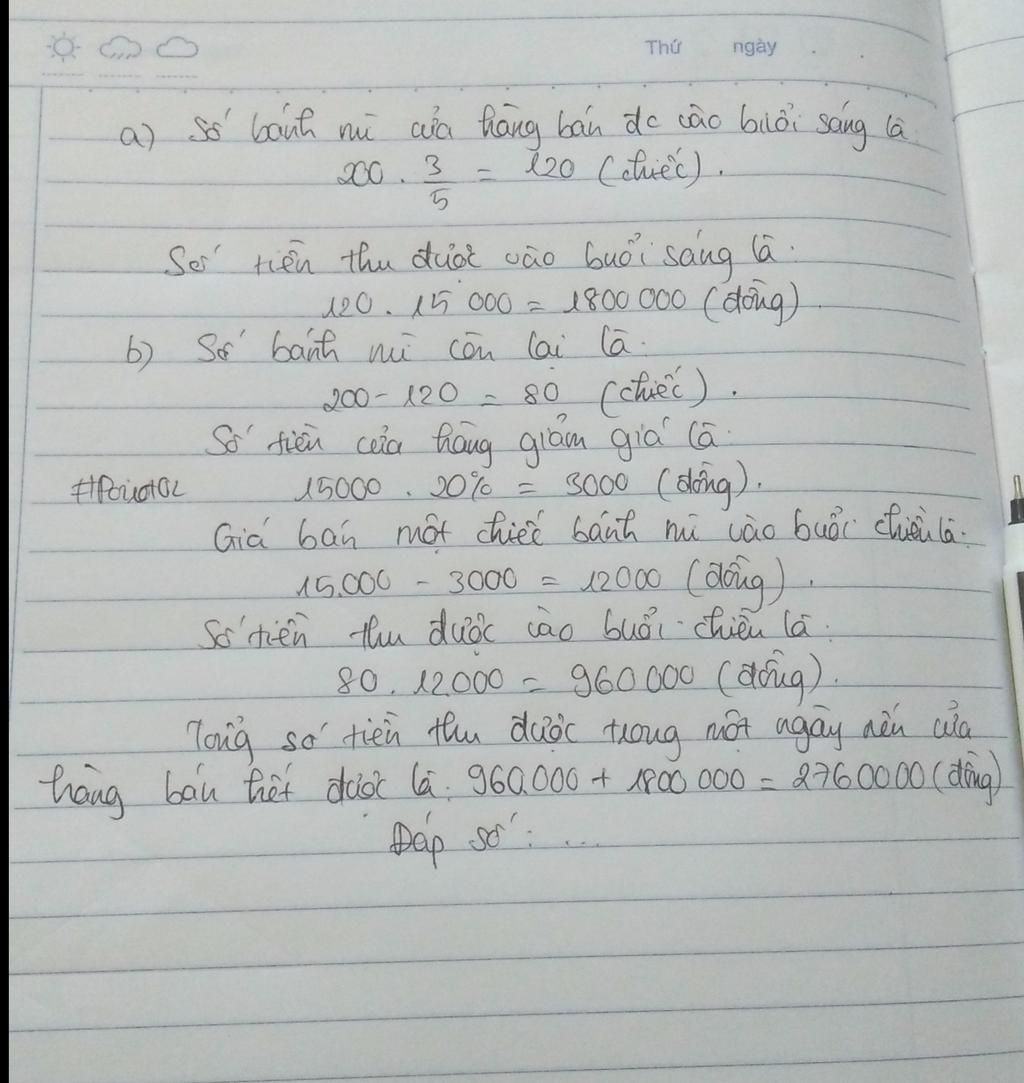 Thứ ngày
a) Số bánh mì cửa hàng bán dc vào buổi sáng là
200 . 3/5 = 120 (chiếc).
Số tiền thu được vào buổi sáng là:
120 . 15 000 = 1800 000 (đồng)
b) Số bánh mì còn lại là:
200 - 120 = 80 (chiếc).
Số tiền cửa hàng giảm giá là:
15000 . 20% = 3000 (đồng).
Giá bán một chiếc bánh mì vào buổi chiều là:
15.000 - 3000 = 12000 (đồng).
Số tiền thu được vào buổi chiều là:
80 . 12.000 = 960 000 (đồng).
Tổng số tiền thu được trong một ngày nếu cửa
hàng bán hết được là: 960.000 + 1800 000 = 2760000 (đồng)
Đáp số: ...